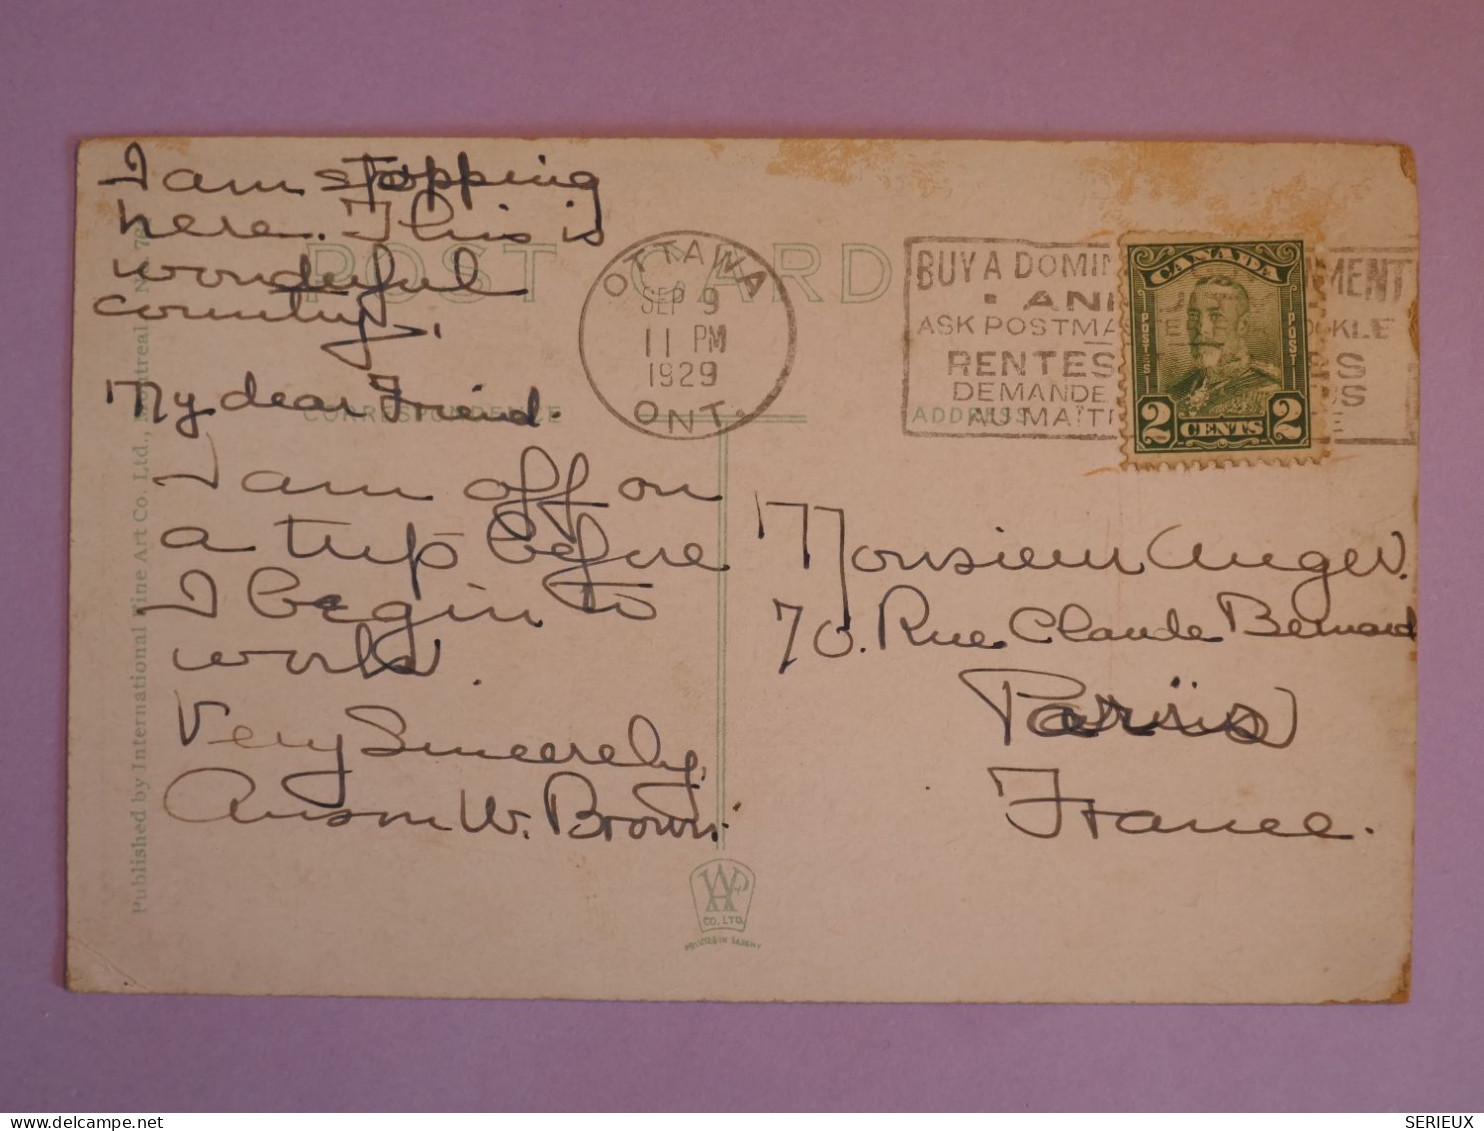 I am stopping
here. This is
wonderful
country.
POST CARD
My dear Friend.
CORRESPONDENCE
I am off on
a trip before
I begin to
work.
Very Sincerely,
Anson W. Brown.
Published by International Fine Art Co. Ltd., Montreal
OTTAWA
SEP 9
11 PM
1929
ONT.
BUY A DOMIN MENT
ASK POSTMA
RENTES
DEMANDE
AU MAÎT
ADDRESS
CANADA
POSTES
POSTES
2 CENTS 2
Monsieur Anger.
70. Rue Claude Bernard
Paris
France.
CO. LTD.
PRINTED IN SAXONY
SERIEUX
delcampe.net